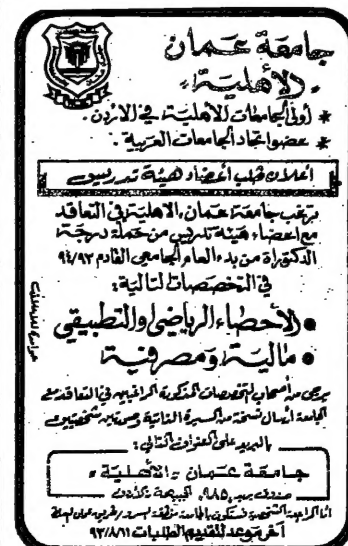 جامعة عمان
الأهلية
* أولى الجامعات الأهلية في الأردن.
* عضو اتحاد الجامعات العربية.
اعلان طلب أعضاء هيئة تدريس
ترغب جامعة عمان الأهلية في التعاقد
مع اعضاء هيئة تدريس من حملة درجة
الدكتوراة من بدء العام الجامعي القادم ٩٤/٩٣
في التخصصات التالية:
• الأحصاء الرياضي والتطبيقي
• مالية ومصرفية
يرجى من أصحاب التخصصات المذكورة الراغبين في التعاقد مع
الجامعة ارسال نسخة من السيرة الذاتية وصورتين شخصيتين
بالبريد على العنوان التالي:
جامعة عمان الأهلية
صندوق بريد
أما المراجعة الشخصية فستكون
آخر موعد لتقديم الطلبات